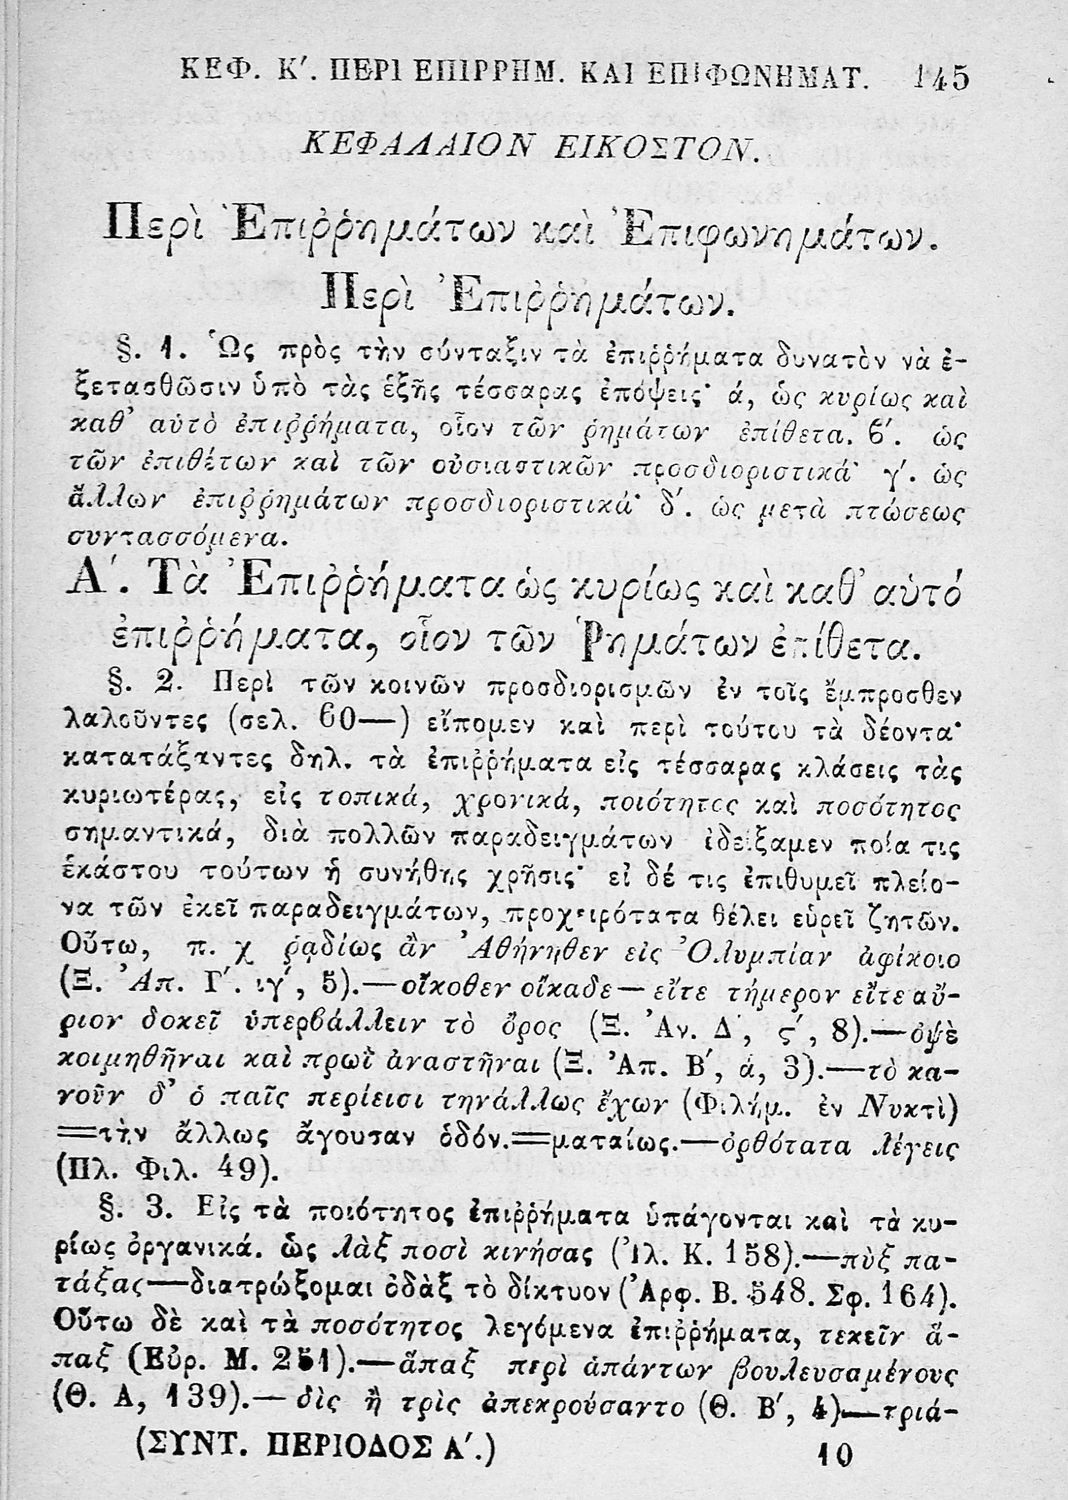 ΚΕΦ. Κʹ. ΠΕΡΙ ΕΠΙΡΡΗΜ. ΚΑΙ ΕΠΙΦΩΝΗΜΑΤ. 145
ΚΕΦΑΛΑΙΟΝ ΕΙΚΟΣΤΟΝ.
Περὶ Ἐπιῤῥημάτων καὶ Ἐπιφωνημάτων.
Περὶ Ἐπιῤῥημάτων.
§. 1. Ὡς πρὸς τὴν σύνταξιν τὰ ἐπιῤῥήματα δυνατὸν νὰ ἐ-
ξετασθῶσιν ὑπὸ τὰς ἑξῆς τέσσαρας ἐπόψεις· ά, ὡς κυρίως καὶ
καθ' αὑτὸ ἐπιῤῥήματα, οἷον τῶν ῥημάτων ἐπίθετα. ϐʹ. ὡς
τῶν ἐπιθέτων καὶ τῶν οὐσιαστικῶν προσδιοριστικά· γʹ. ὡς
ἄλλων ἐπιῤῥημάτων προσδιοριστικά· δʹ. ὡς μετὰ πτώσεως
συντασσόμενα.
Αʹ. Τὰ Ἐπιῤῥήματα ὡς κυρίως καὶ καθ' αὑτό
ἐπιῤῥήματα, οἷον τῶν Ῥημάτων ἐπίθετα.
§. 2. Περὶ τῶν κοινῶν προσδιορισμῶν ἐν τοῖς ἔμπροσθεν
λαλοῦντες (σελ. 60—) εἴπομεν καὶ περὶ τούτου τὰ δέοντα·
κατατάξαντες δηλ. τὰ ἐπιῤῥήματα εἰς τέσσαρας κλάσεις τὰς
κυριωτέρας, εἰς τοπικά, χρονικά, ποιότητος καὶ ποσότητος
σημαντικά, διὰ πολλῶν παραδειγμάτων ἐδείξαμεν ποία τις
ἑκάστου τούτων ἡ συνήθης χρῆσις· εἰ δέ τις ἐπιθυμεῖ πλείο-
να τῶν ἐκεῖ παραδειγμάτων, προχειρότατα θέλει εὑρεῖ ζητῶν.
Οὕτω, π. χ ῥᾳδίως ἂν Ἀθήνηθεν εἰς Ὀλυμπίαν ἀφίκοιο
(Ξ. Ἀπ. Γʹ. ιγʹ, 5).—οἴκοθεν οἴκαδε—εἴτε τήμερον εἴτε αὔ-
ριον δοκεῖ ὑπερβάλλειν τὸ ὄρος (Ξ. Ἀν. Δʹ, ςʹ, 8).—ὀψὲ
κοιμηθῆναι καὶ πρωῒ ἀναστῆναι (Ξ. Ἀπ. Βʹ, ά, 3).—τὸ κα-
νοῦν δ' ὁ παῖς περίεισι τηνάλλως ἔχων (Φιλήμ. ἐν Νυκτὶ)
=τὴν ἄλλως ἄγουσαν ὁδόν.=ματαίως.—ὀρθότατα λέγεις
(Πλ. Φιλ. 49).
§. 3. Εἰς τὰ ποιότητος ἐπιῤῥήματα ὑπάγονται καὶ τὰ κυ-
ρίως ὀργανικά. ὡς λὰξ ποσὶ κινήσας (Ἰλ. Κ. 158).—πὺξ πα-
τάξας—διατρώξομαι ὀδὰξ τὸ δίκτυον (Ἀρφ. Β. 548. Σφ. 164).
Οὕτω δὲ καὶ τὰ ποσότητος λεγόμενα ἐπιῤῥήματα, τεκεῖν ἅ-
παξ (Εὐρ. Μ. 251).—ἅπαξ περὶ ἁπάντων βουλευσαμένους
(Θ. Α, 139).—δὶς ἢ τρὶς ἀπεκρούσαντο (Θ. Βʹ, 4)—τριά-
(ΣΥΝΤ. ΠΕΡΙΟΔΟΣ Αʹ.) 10